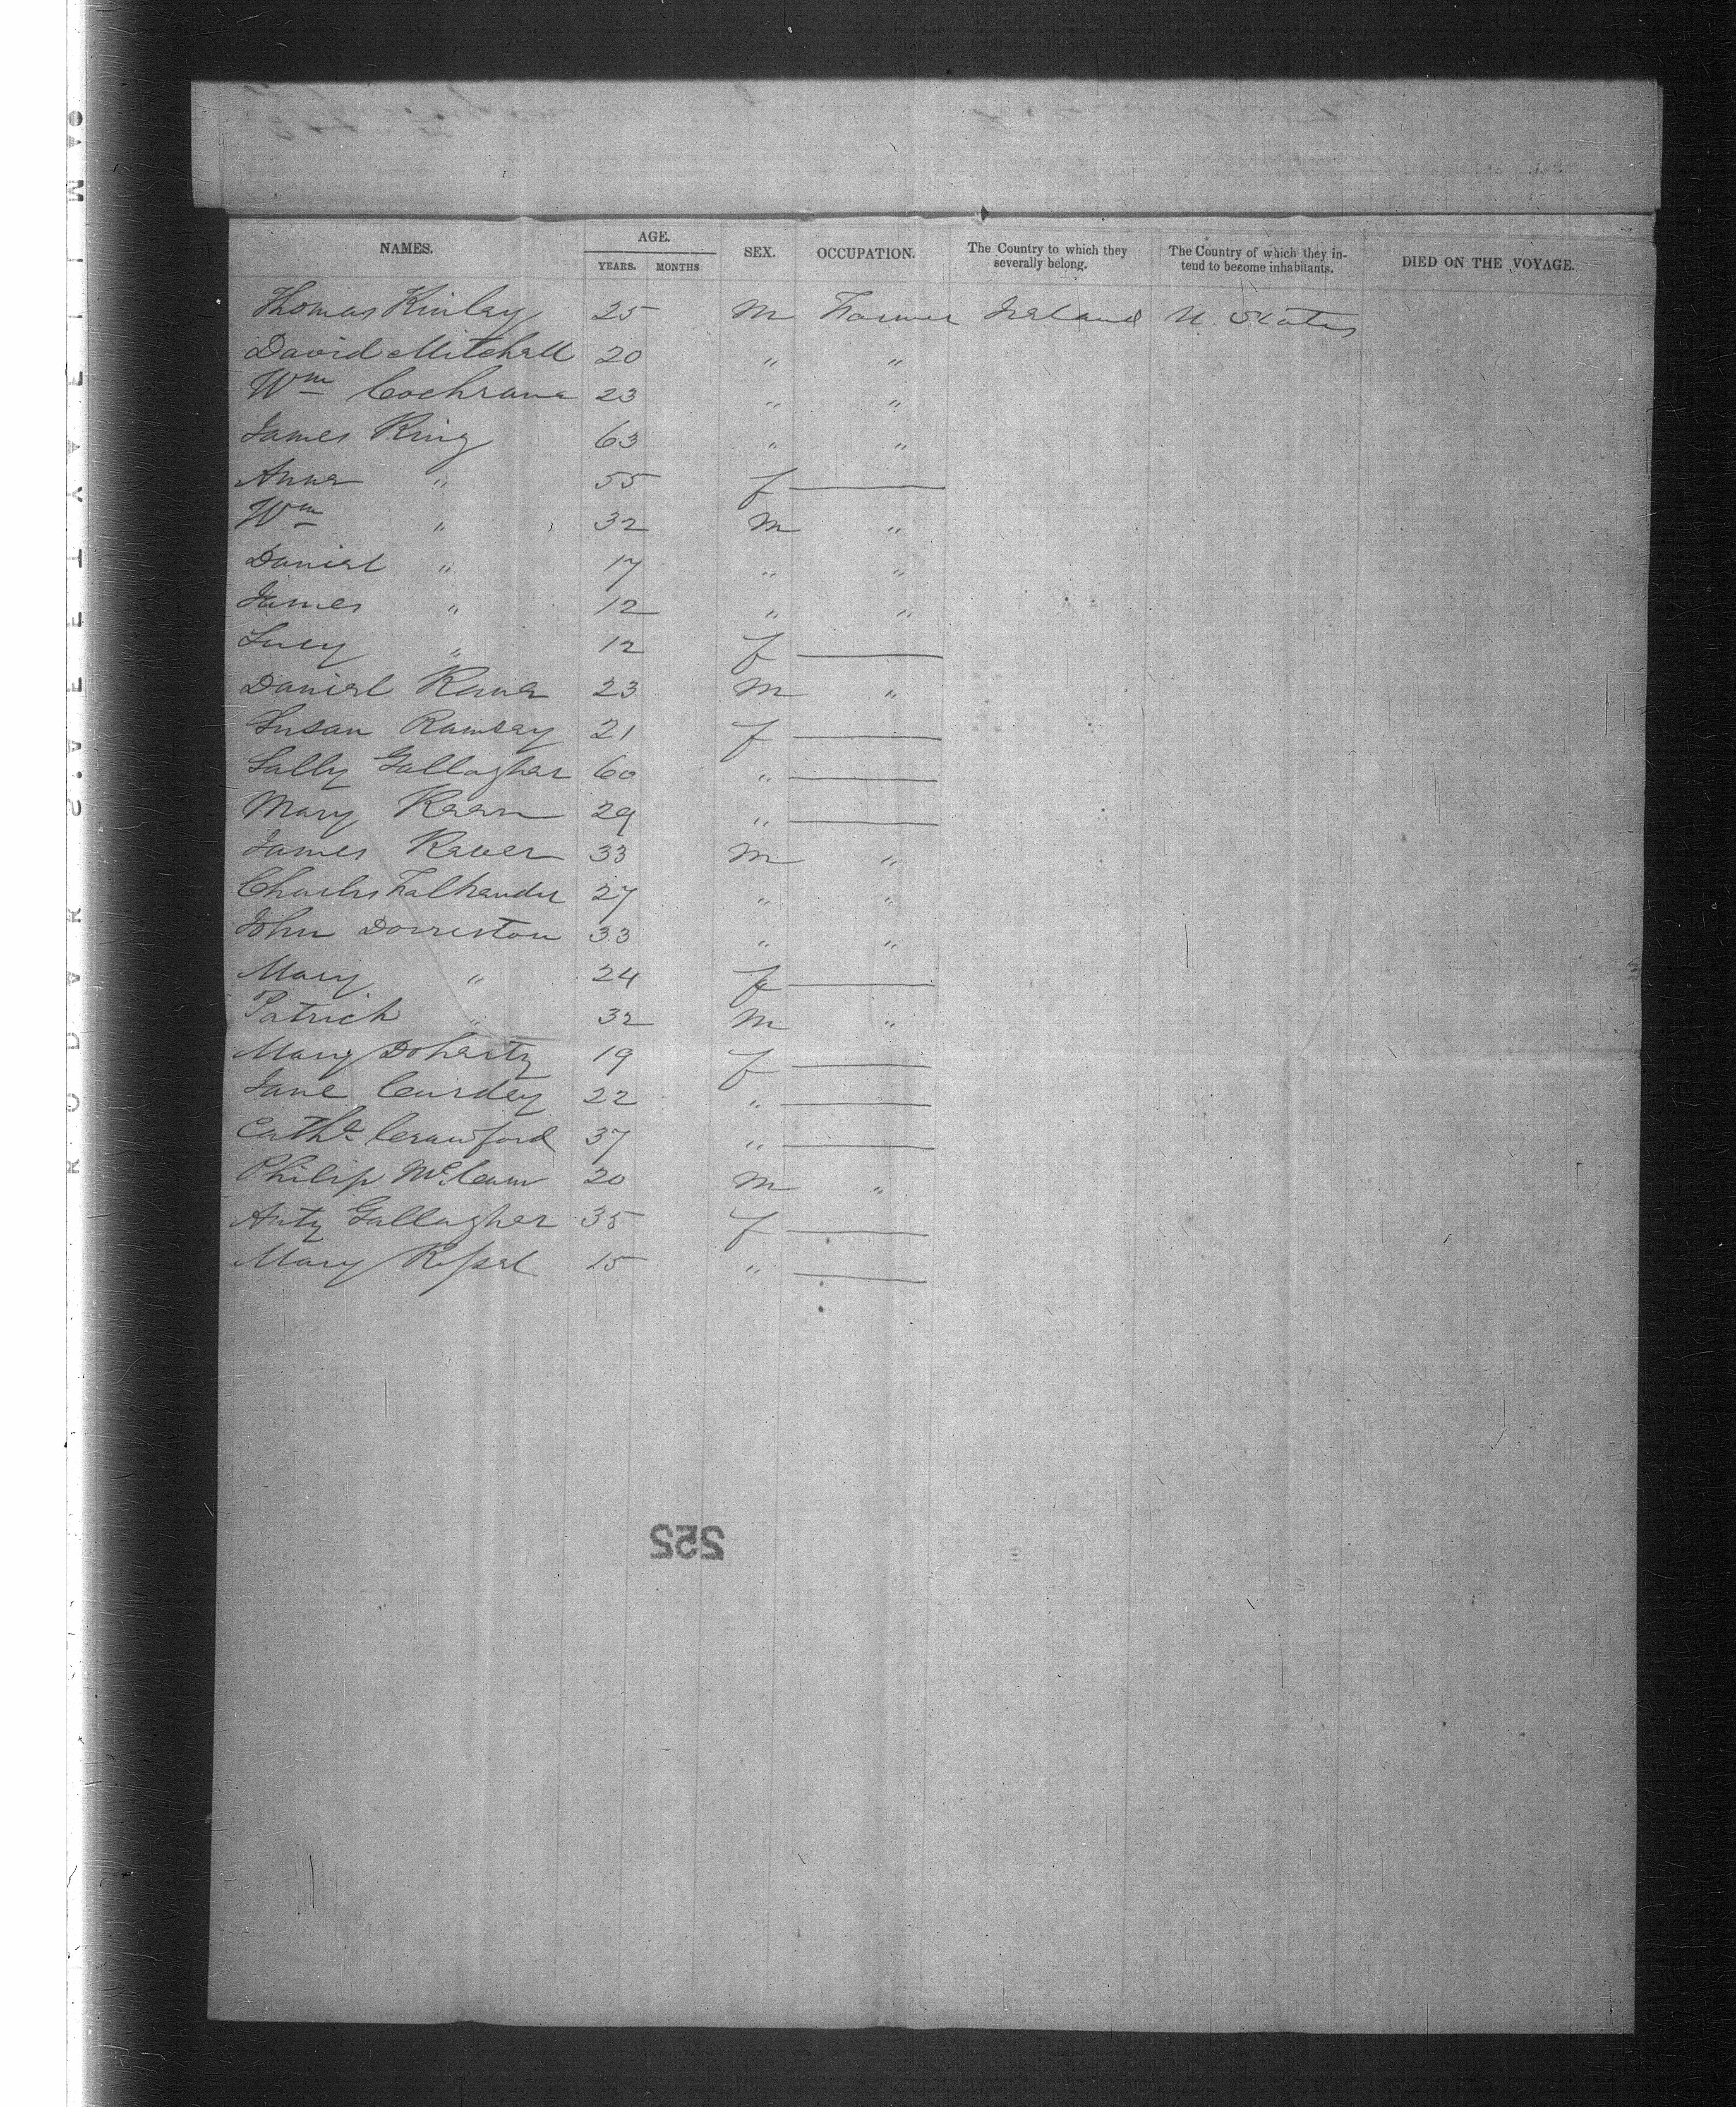 NAMES. AGE. YEARS. MONTHS SEX. OCCUPATION. The Country to which they severally belong. The Country of which they intend to become inhabitants. DIED ON THE VOYAGE.
Thomas Kinlay 25 M Farmer Ireland U. States
David Mitchell 20 " "
Wm Cochrane 23 " "
James King 63 " "
Anna " 55 f —
Wm " 32 M "
Daniel " 17 " "
James " 12 " "
Lucy " 12 f —
Daniel 23 M "
Susan Ramsay 21 f —
Sally Gallagher 60 " —
Mary 29 " —
James 33 M "
Charles 27 " "
John Dorreston 33 " "
Mary " 24 f —
Patrick " 32 M "
Mary Doherty 19 f —
Jane 22 " —
Cath Crawford 37 " —
Philip 20 M "
Anty Gallagher 35 f —
Mary 15 " —
252